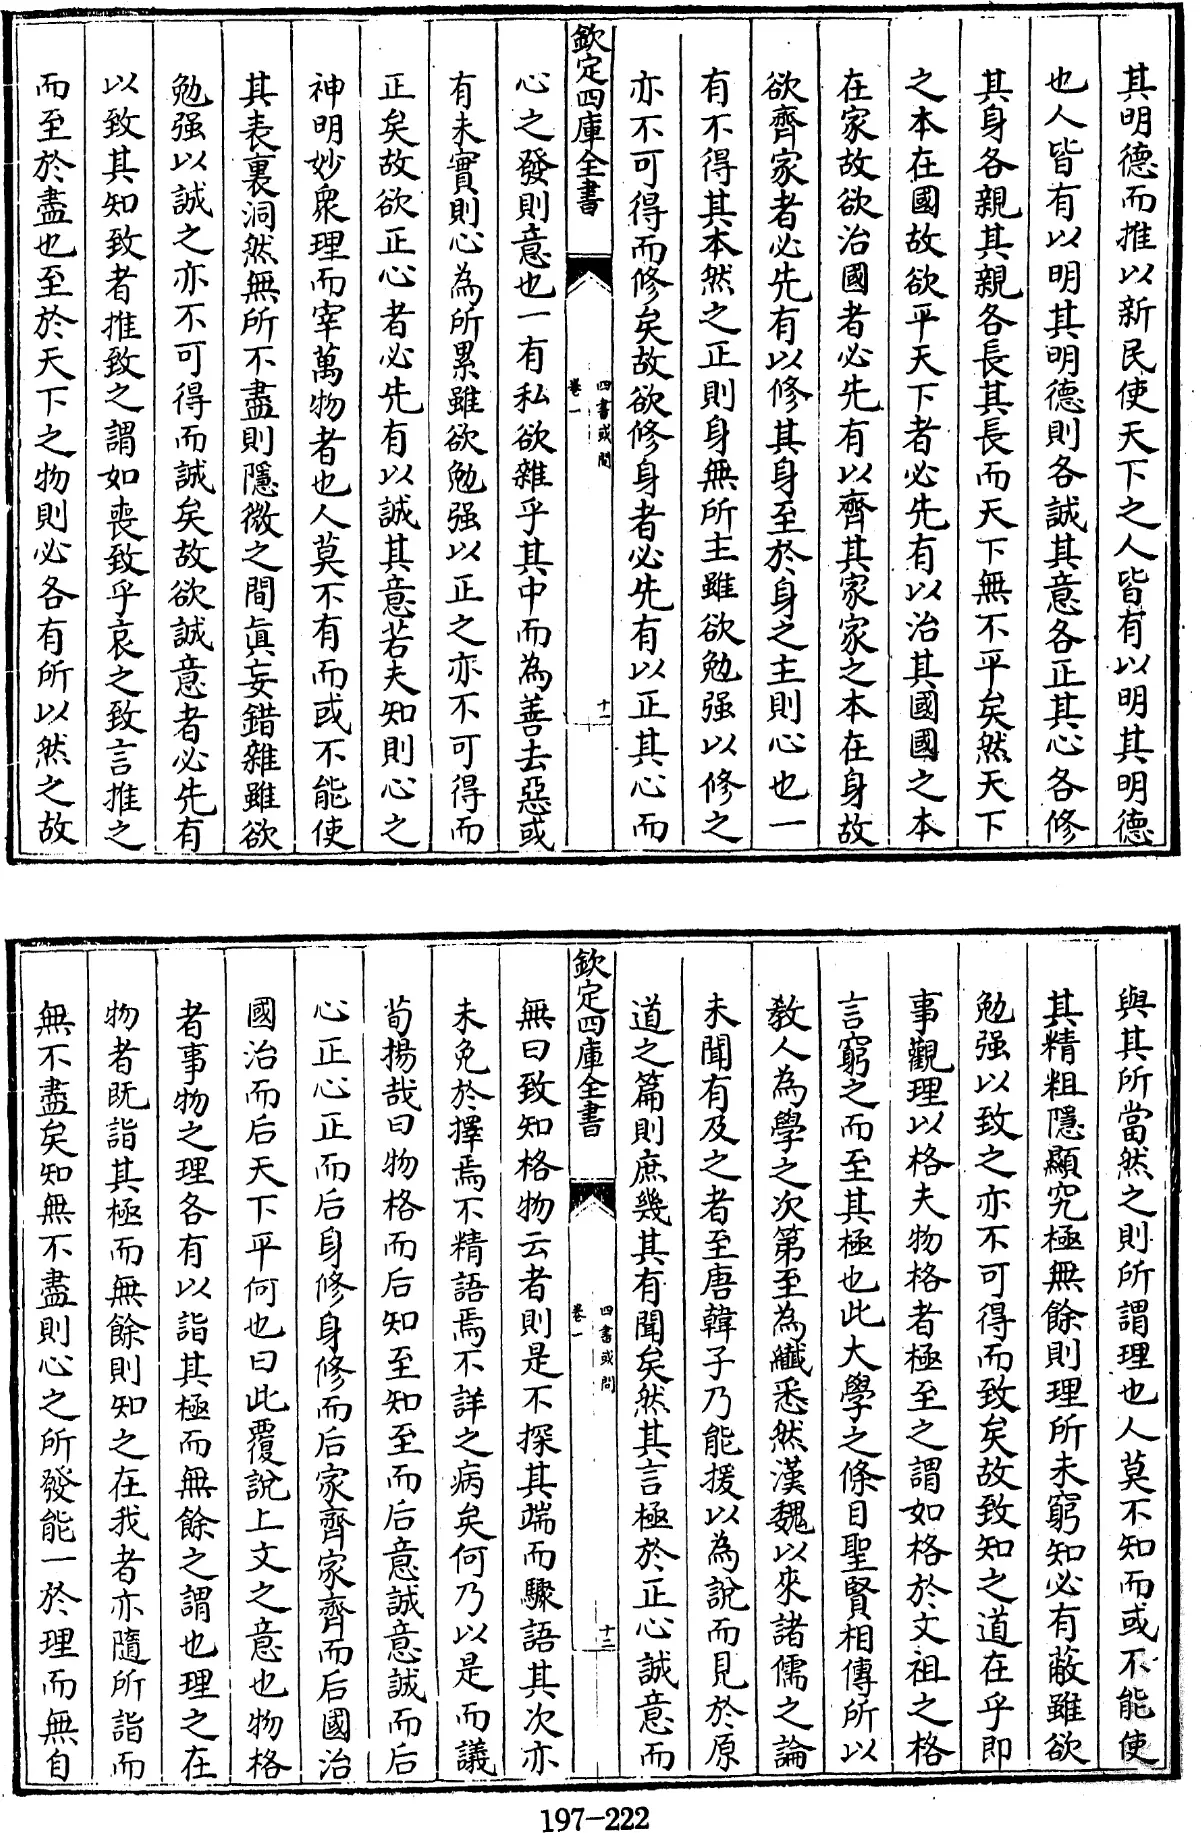 其明德而推以新民使天下之人皆有以明其明德
也人皆有以明其明德則各誠其意各正其心各修
其身各親其親各長其長而天下無不平矣然天下
之本在國故欲平天下者必先有以治其國國之本
在家故欲治國者必先有以齊其家家之本在身故
欲齊家者必先有以修其身至於身之主則心也一
有不得其本然之正則身無所主雖欲勉强以修之
亦不可得而修矣故欲修身者必先有以正其心而
欽定四庫全書
四書或問
卷一
十一
心之發則意也一有私欲雜乎其中而為善去惡或
有未實則心為所累雖欲勉强以正之亦不可得而
正矣故欲正心者必先有以誠其意若夫知則心之
神明妙衆理而宰萬物者也人莫不有而或不能使
其表裏洞然無所不盡則隱微之間眞妄錯雜雖欲
勉强以誠之亦不可得而誠矣故欲誠意者必先有
以致其知致者推致之謂如喪致乎哀之致言推之
而至於盡也至於天下之物則必各有所以然之故
與其所當然之則所謂理也人莫不知而或不能使
其精粗隱顯究極無餘則理所未窮知必有蔽雖欲
勉强以致之亦不可得而致矣故致知之道在乎即
事觀理以格夫物格者極至之謂如格於文祖之格
言窮之而至其極也此大學之條目聖賢相傳所以
教人為學之次第至為纖悉然漢魏以來諸儒之論
未聞有及之者至唐韓子乃能援以為說而見於原
道之篇則庶幾其有聞矣然其言極於正心誠意而
欽定四庫全書
四書或問
卷一
十二
無曰致知格物云者則是不探其端而驟語其次亦
未免於擇焉不精語焉不詳之病矣何乃以是而議
荀揚哉曰物格而后知至知至而后意誠意誠而后
心正心正而后身修身修而后家齊家齊而后國治
國治而后天下平何也曰此覆說上文之意也物格
者事物之理各有以詣其極而無餘之謂也理之在
物者既詣其極而無餘則知之在我者亦隨所詣而
無不盡矣知無不盡則心之所發能一於理而無自
197-222